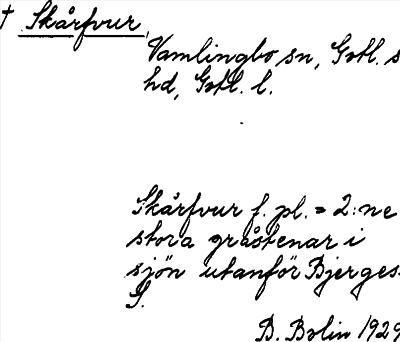 † Skårfvur,
Vamlingbo sn, Gotl. s
hd, Gotl. l.
Skårfvur f. pl. = 2:ne
stora gråstenar i
sjön utanför Bjerges
S.
B. Bolin 1929